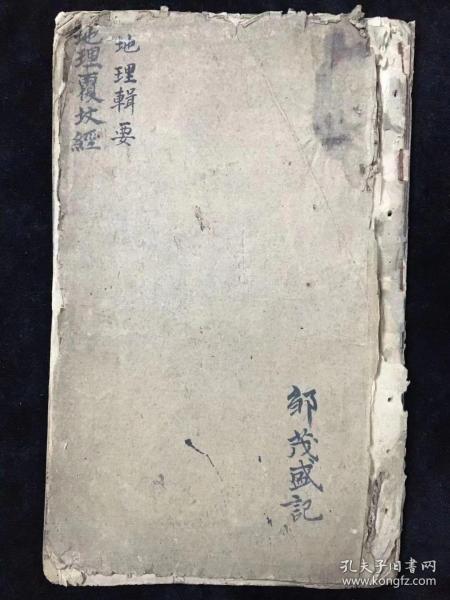 地理輯要
地理覆坟經
邹茂盛記
孔夫子旧书网
www.kongfz.com